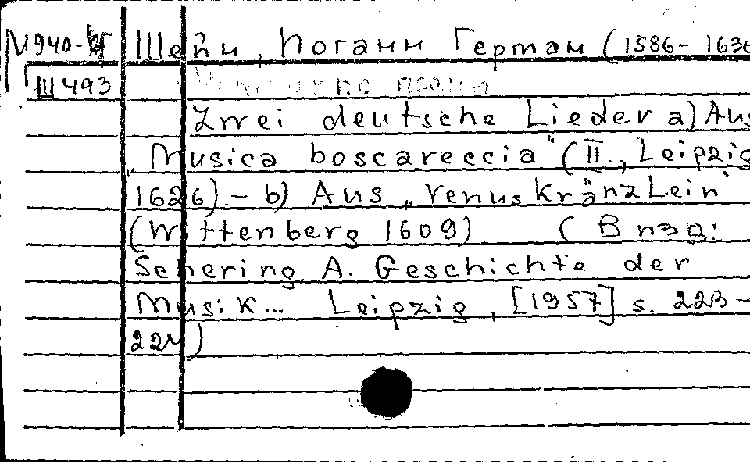 М940- Шейн, Йоганн Герман (1586-1630
Ш493
Zwei deutsche Lieder a) Aus
„Musica boscareccia" (II., Leipzig
1626) - b) Aus „Venus Kränzlein"
(Wittenberg 1609) (В изд:
Schering A. Geschichte der
Musik... Leipzig, [1957] s. 223-
224)